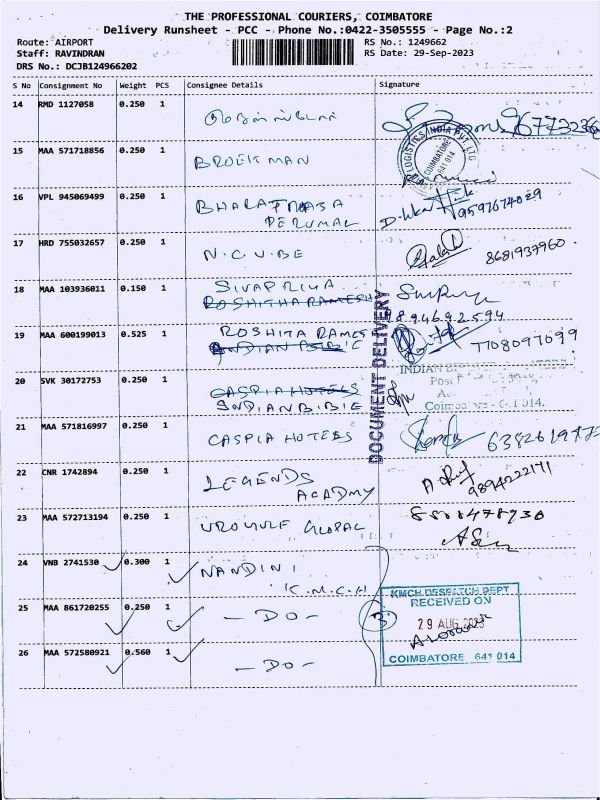 THE PROFESSIONAL COURIERS, COIMBATORE
Delivery Runsheet - PCC - Phone No.:0422-3505555 - Page No.:2
Route: AIRPORT
RS No.: 1249662
Staff: RAVINDRAN
RS Date: 29-Sep-2023
DRS No.: DCJB124966202
S No Consignment No Weight PCS Consignee Details Signature
14 RMD 1127058 0.250 1
LOGISTICS INDIA PVT LTD
COIMBATORE
641 014
15 MAA 571718856 0.250 1 BROEKMAN
16 VPL 945069499 0.250 1 BHARAT
PERUMAL
9597674029
17 HRD 755032657 0.250 1 N.C.V.BE 8681937960
18 MAA 103936011 0.150 1 SIVAPRIYA
ROSHITHA RAMESH
8894692594
19 MAA 600199013 0.525 1 ROSHITA RAMES
INDIAN BIBIE
7708097099
DOCUMENT DELIVERY
20 SVK 30172753 0.250 1 CASPIA HOTELS
INDIAN BIBIE
INDIAN
Coimbatore - 641 014.
21 MAA 571816997 0.250 1 CASPIA HOTELS
22 CNR 1742894 0.250 1 LEGENDS
ACADMY
9894222171
23 MAA 572713194 0.250 1 GLOBAL
24 VNB 2741530 0.300 1 NANDINI
K.M.C.H
25 MAA 861720255 0.250 1 - DO -
3
KMCH DESPATCH DEPT
RECEIVED ON
29 AUG 2023
COIMBATORE 641 014
26 MAA 572580921 0.560 1 - DO -